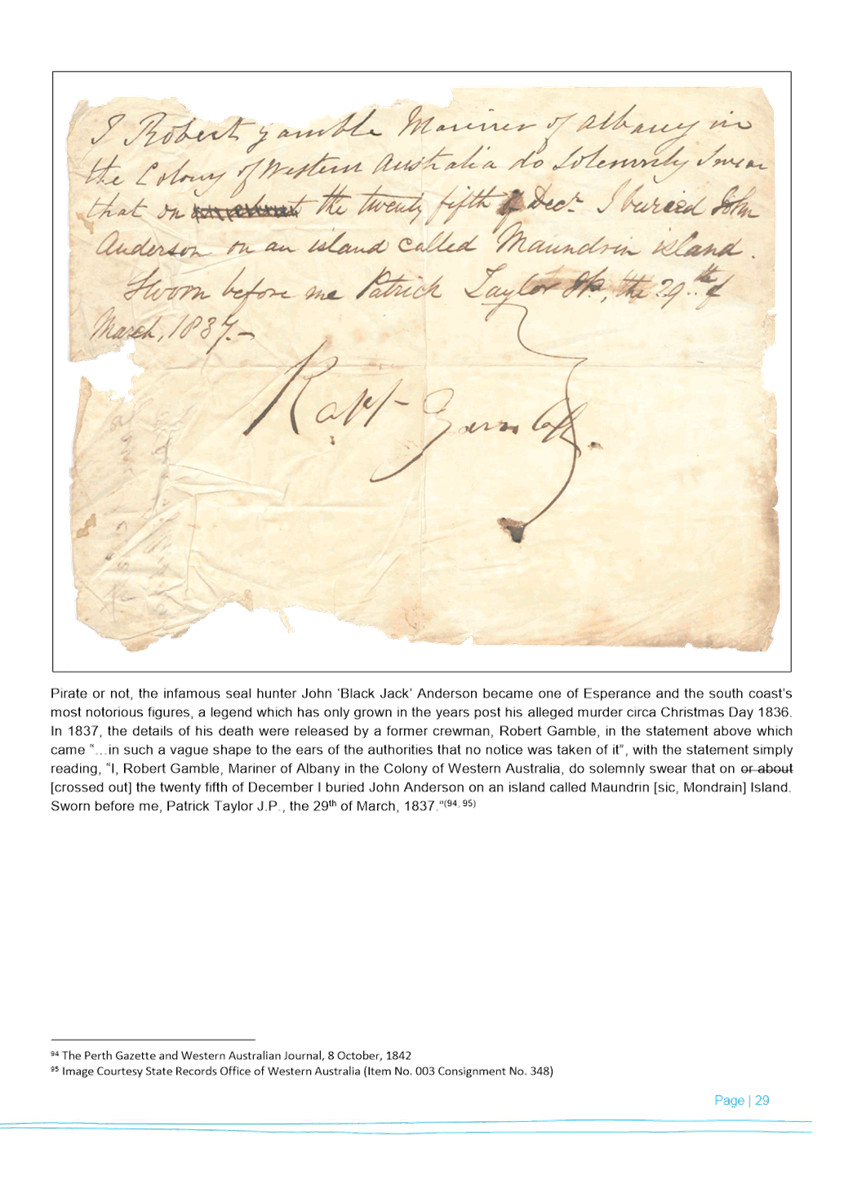 I Robert Gamble Mariner of Albany in
the Colony of Western Australia do Solemnly Swear
that on the twenty fifth of Decr. I buried John
Anderson on an island called Maundrin island.
Sworn before me Patrick Taylor JP., the 29th of
March, 1837.-
Robt Gamble
Pirate or not, the infamous seal hunter John ‘Black Jack’ Anderson became one of Esperance and the south coast’s
most notorious figures, a legend which has only grown in the years post his alleged murder circa Christmas Day 1836.
In 1837, the details of his death were released by a former crewman, Robert Gamble, in the statement above which
came “…in such a vague shape to the ears of the authorities that no notice was taken of it”, with the statement simply
reading, “I, Robert Gamble, Mariner of Albany in the Colony of Western Australia, do solemnly swear that on or about
[crossed out] the twenty fifth of December I buried John Anderson on an island called Maundrin [sic, Mondrain] Island.
Sworn before me, Patrick Taylor J.P., the 29th of March, 1837.”(94, 95)
94 The Perth Gazette and Western Australian Journal, 8 October, 1842
95 Image Courtesy State Records Office of Western Australia (Item No. 003 Consignment No. 348)
Page | 29